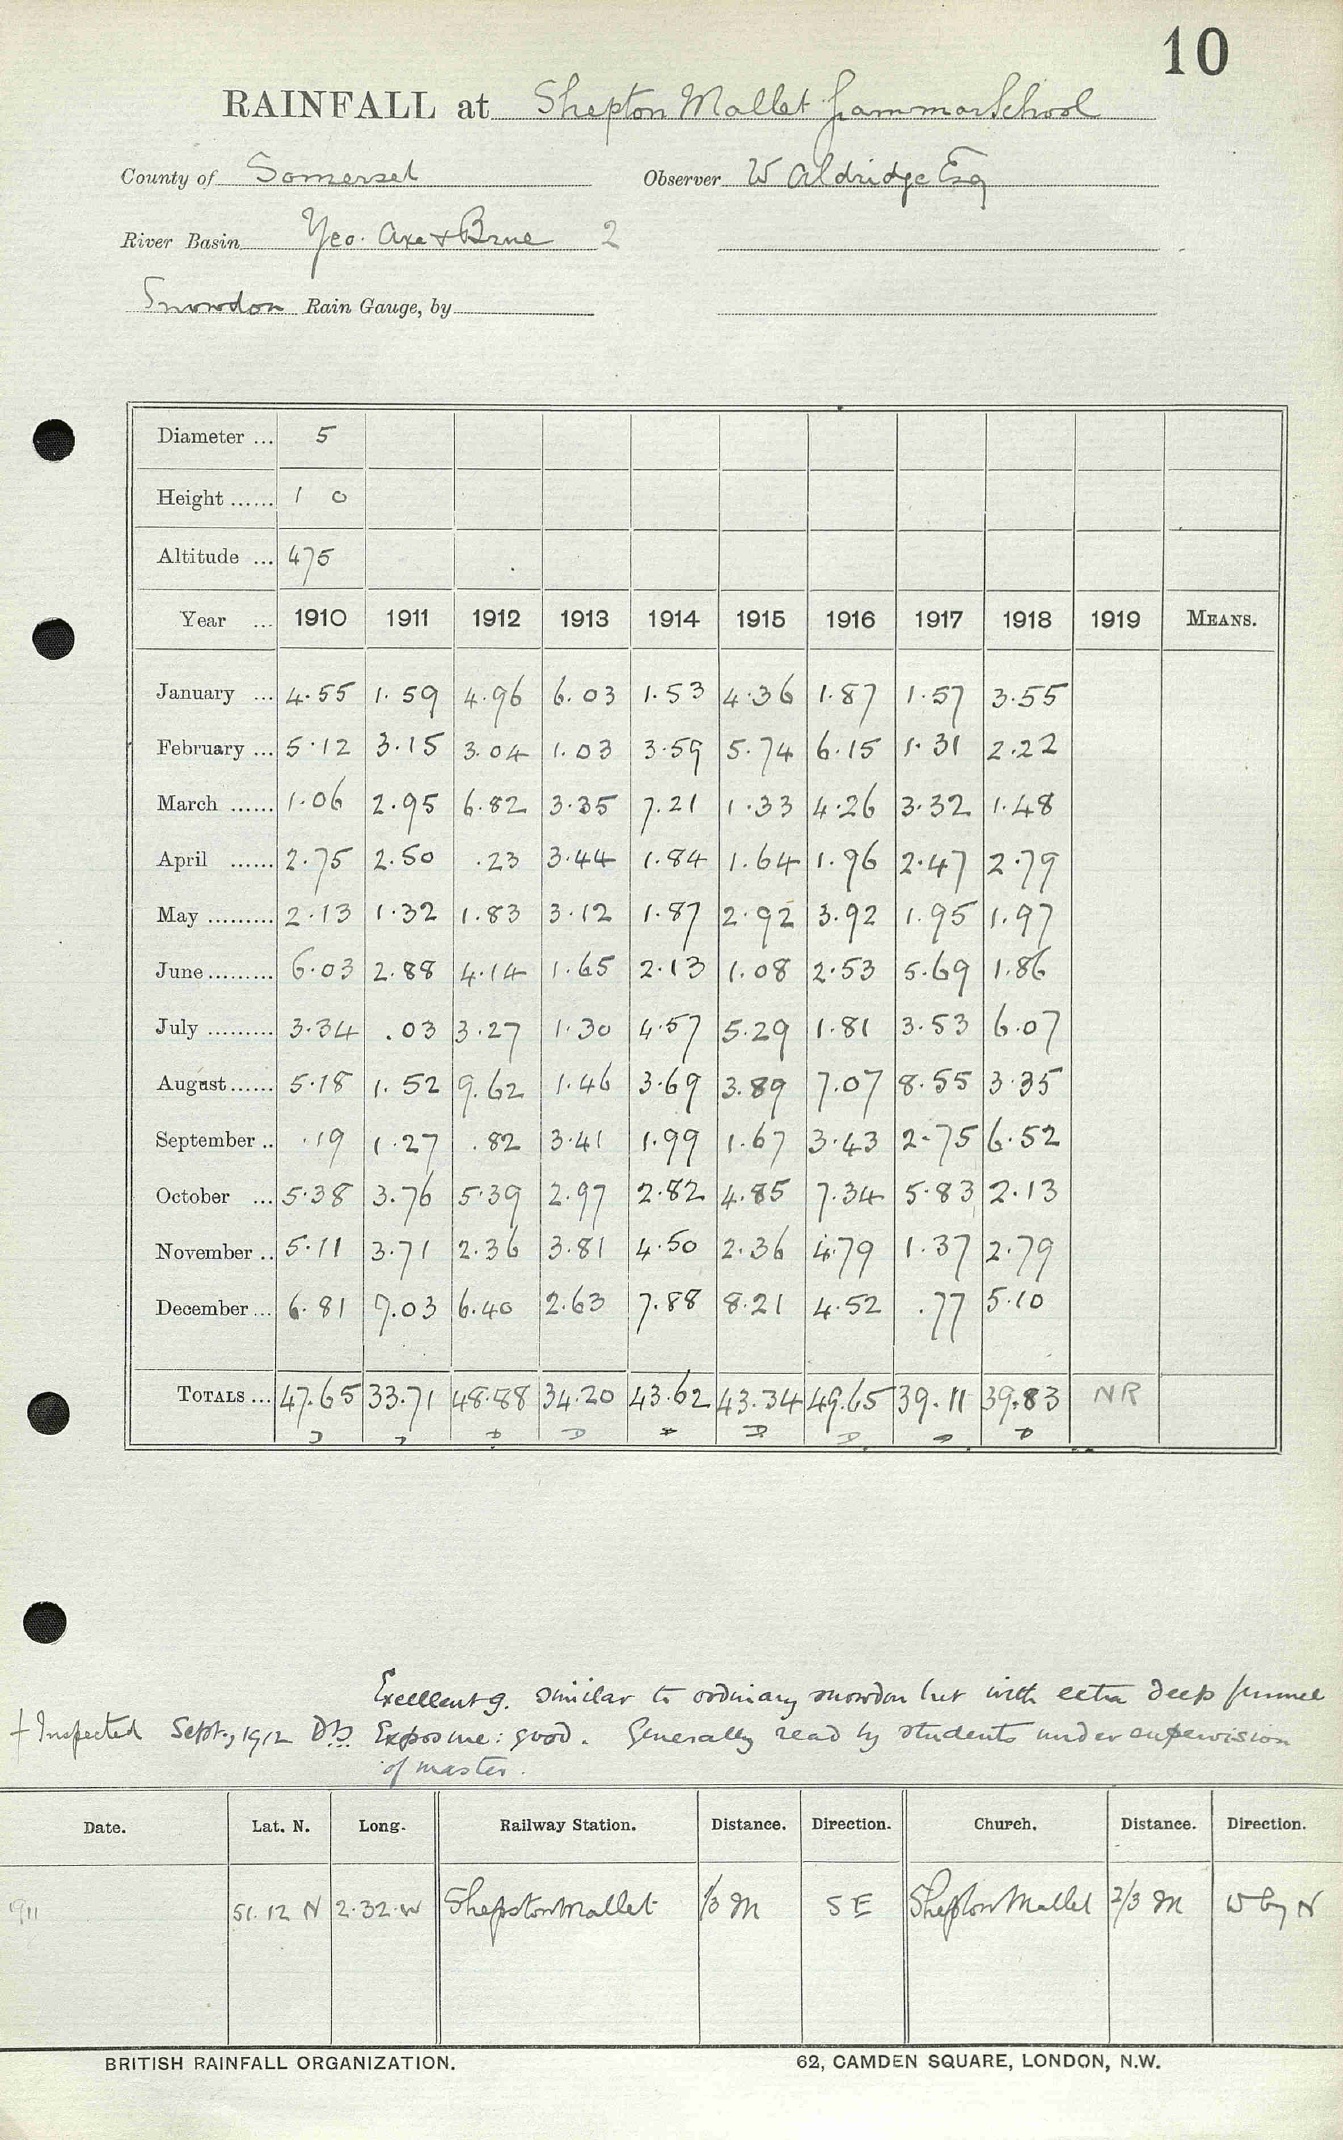 10
RAINFALL at Shepton Mallet Grammar School
County of Somerset Observer W Aldridge Esq
River Basin Yeo. Axe & Brue 2
Snowdon Rain Gauge, by
Diameter ... 5
Height ...... 1 0
Altitude ... 475
Year ... 1910 1911 1912 1913 1914 1915 1916 1917 1918 1919 MEANS.
January ... 4.55 1.59 4.96 6.03 1.53 4.36 1.87 1.57 3.55
February ... 5.12 3.15 3.04 1.03 3.59 5.74 6.15 1.31 2.22
March ...... 1.06 2.95 6.82 3.35 7.21 1.33 4.26 3.32 1.48
April ...... 2.75 2.50 .23 3.44 1.84 1.64 1.96 2.47 2.79
May ......... 2.13 1.32 1.83 3.12 1.87 2.92 3.92 1.95 1.97
June ......... 6.03 2.88 4.14 1.65 2.13 1.08 2.53 5.69 1.86
July ......... 3.34 .03 3.27 1.30 4.57 5.29 1.81 3.53 6.07
August ...... 5.18 1.52 9.62 1.46 3.69 3.89 7.07 8.55 3.35
September .. .19 1.27 .82 3.41 1.99 1.67 3.43 2.75 6.52
October ... 5.38 3.76 5.39 2.97 2.82 4.85 7.34 5.83 2.13
November .. 5.11 3.71 2.36 3.81 4.50 2.36 4.79 1.37 2.79
December ... 6.81 9.03 6.40 2.63 7.88 8.21 4.52 .77 5.10
TOTALS ... 47.65 33.71 48.88 34.20 43.62 43.34 49.65 39.11 39.83 NR
D D D D D D D D D
Excellent g. similar to ordinary snowdon but with extra deep funnel
† Inspected Sept., 1912 Exposure: good. Generally read by students under supervision
of master.
Date. Lat. N. Long. Railway Station. Distance. Direction. Church. Distance. Direction.
1911 51.12 N 2.32.W Shepton Mallet 1/3 M S E Shepton Mallet 2/3 M W by N
BRITISH RAINFALL ORGANIZATION. 62, CAMDEN SQUARE, LONDON, N.W.